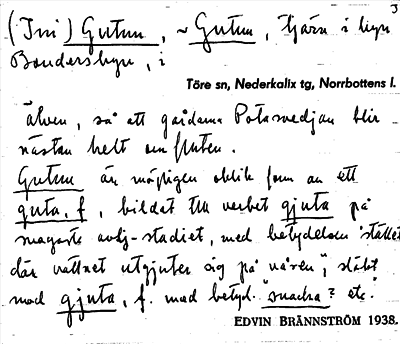 3
(Ini) Gutun, ~ Gutun, tjärn i byn
Bondersbyn, i
Töre sn, Nederkalix tg, Norrbottens l.
älven, så att gårdarna Potasmedjan blir
nästan helt omfluten.
Gutun är möjligen oblik form av ett
guta, f, bildat till verbet gjuta på
svagaste avlj.-stadiet, med betydelsen "stället
där vattnet utgjuter sig på våren",
med gjuta, f. med betyd. "snacka? etc."
EDVIN BRÄNNSTRÖM 1938.